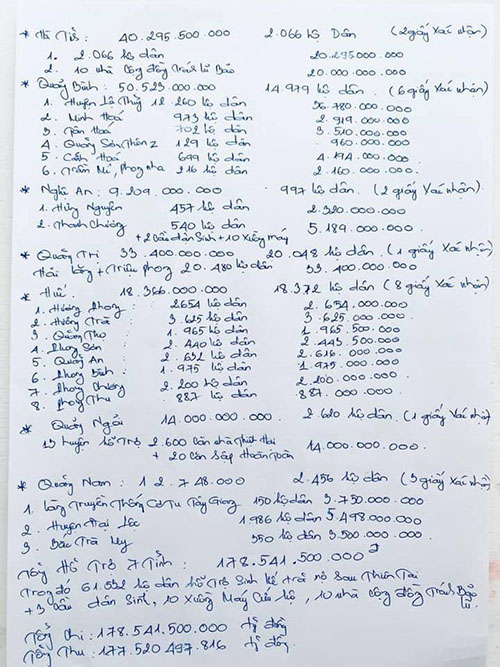 * Hà Tĩnh: 40.295.500.000 2.066 hộ Dân (2 giấy Xác nhận)
1. 2.066 hộ dân 20.295.000.000
2. 10 nhà Cộng đồng Tránh lũ Bão 20.000.000.000
* Quảng Bình: 50.523.000.000 14.979 hộ dân (6 giấy Xác nhận)
1. Huyện Lệ Thủy 12.260 hộ dân 36.780.000.000
2. Minh Hoá 973 hộ dân 2.919.000.000
3. Tân Hoá 702 hộ dân 3.510.000.000
4. Quảng Sơn Thôn 2 129 hộ dân 960.000.000
5. Cảnh Hoá 699 hộ dân 4.194.000.000
6. Trằm Mé, Phong nha 216 hộ dân 2.160.000.000
* Nghệ An: 9.209.000.000 997 hộ dân (2 giấy Xác nhận)
1. Hưng Nguyên 457 hộ dân 2.320.000.000
2. Thanh Chương 540 hộ dân 5.189.000.000
+ 2 Cầu dân Sinh + 10 Xuồng máy
* Quảng Trị 33.400.000.000 20.048 hộ dân (1 giấy Xác nhận)
Hải Lăng + Triệu Phong 20.480 hộ dân 33.400.000.000
* Huế: 18.366.000.000 18.372 hộ dân (8 giấy Xác nhận)
1. Hương Phong: 2654 hộ dân 2.654.000.000
2. Hương Trà: 3.625 hộ dân 3.625.000.000
3. Quảng Thọ 1.965 hộ dân 1.965.500.000
4. Phong Sơn 2.440 hộ dân 2.443.500.000
5. Quảng An 2.632 hộ dân 2.616.000.000
6. Phong Bình: 1.975 hộ dân 1.975.000.000
7. Phong Chương 2.200 hộ dân 2.200.000.000
8. Phong Thu 887 hộ dân 887.000.000
* Quảng Ngãi 14.000.000.000. 2.620 hộ dân. (1 giấy Xác nhận)
13 huyện hỗ Trợ 2.600 Căn nhà Thiệt Hại 14.000.000.000
+ 20 Căn Sập Hoàn Toàn
* Quảng Nam: 12.748.000 2.456 hộ dân (3 giấy Xác nhận)
1. Làng Truyền Thống Cơ Tu Tây Giang 150 hộ dân 3.750.000.000
2. Huyện Đại Lộc 1986 hộ dân 5.498.000.000
3. Bắc Trà My 350 hộ dân 3.500.000.000
Tổng Hỗ Trợ 7 Tỉnh: 178.541.500.000 đ
Trong đó 61.532 hộ dân hỗ Trợ Sinh Kế trả nợ Sau Thiên Tai
+ 3 Cầu dân Sinh, 10 Xuồng Máy Cứu hộ, 10 nhà Cộng đồng Tránh Bão lũ
Tổng Chi: 178.541.500.000 tỷ đồng
Tổng Thu: 177.520.497.816 tỷ đồng.